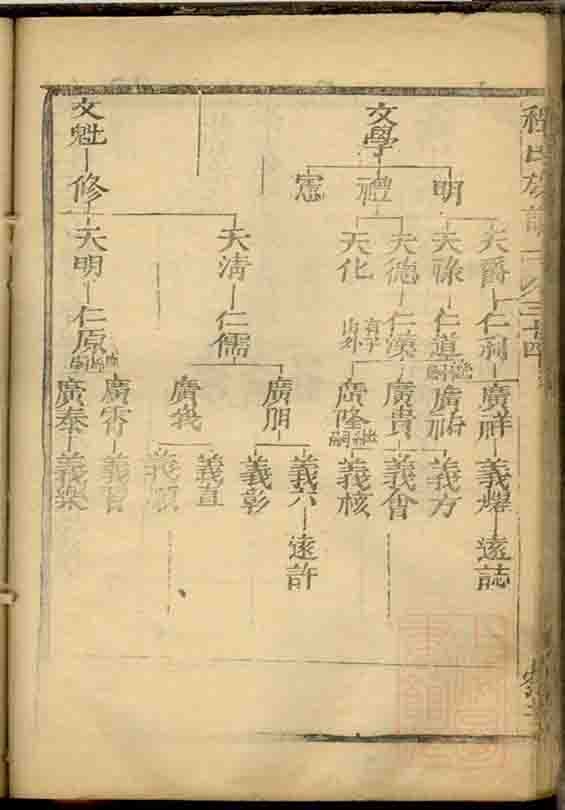 程氏族譜
文學
明
禮
憲
天爵
天祿
天德
天化
仁利
仁道
仁漢
有子
山外
廣祥
廣祐
廣貴
廣隆
義燿
義方
義會
義核
遠誌
文魁
修
天清
天明
仁儒
仁原
廣明
廣義
廣宵
廣泰
義六
義彰
義直
義順
義晉
義樂
遠許